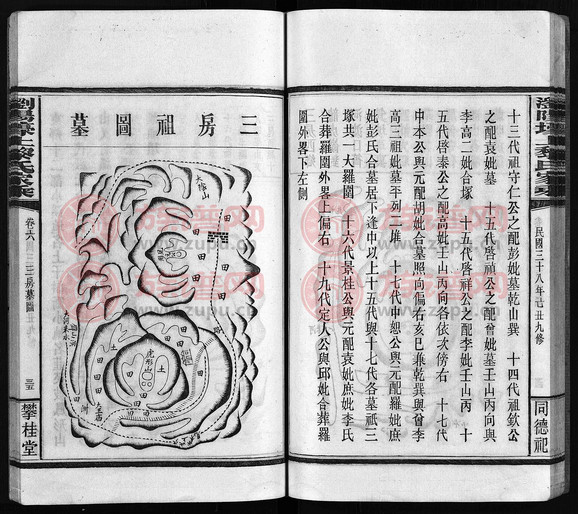 瀏陽壋上黎氏家乘
民國三十八年己丑九修
同德祀
十三代祖守仁公之配彭妣墓乾山巽　十四代祖欽公
之配袁妣墓　十五代啓禎公之配曾妣墓壬山丙向與
李高二妣合塚　十五代啓祥公之配李妣壬山丙　十
五代啓泰公之配高妣壬山丙向各依次傍右　十七代
中本公與元配胡妣合墓照向偏右亥巳兼乾巽與曾李
高三祖妣墓平列二堆　十七代中恕公與元配羅妣庶
妣彭氏合墓居下逢中以上十五代與十七代各墓祇三
塚共一大羅圍　十六代景桂公與元配袁妣庶妣李氏
合葬羅圍外畧上偏右　十九代定人公與邱妣合葬羅
圍外畧下左側
三房祖圖墓
大陰山
田
田
田
田
田
田
虎形山
土
土
田
田
田
田
田
卷十六
三房墓圖
攀桂堂
族譜网
www.zupu.cn